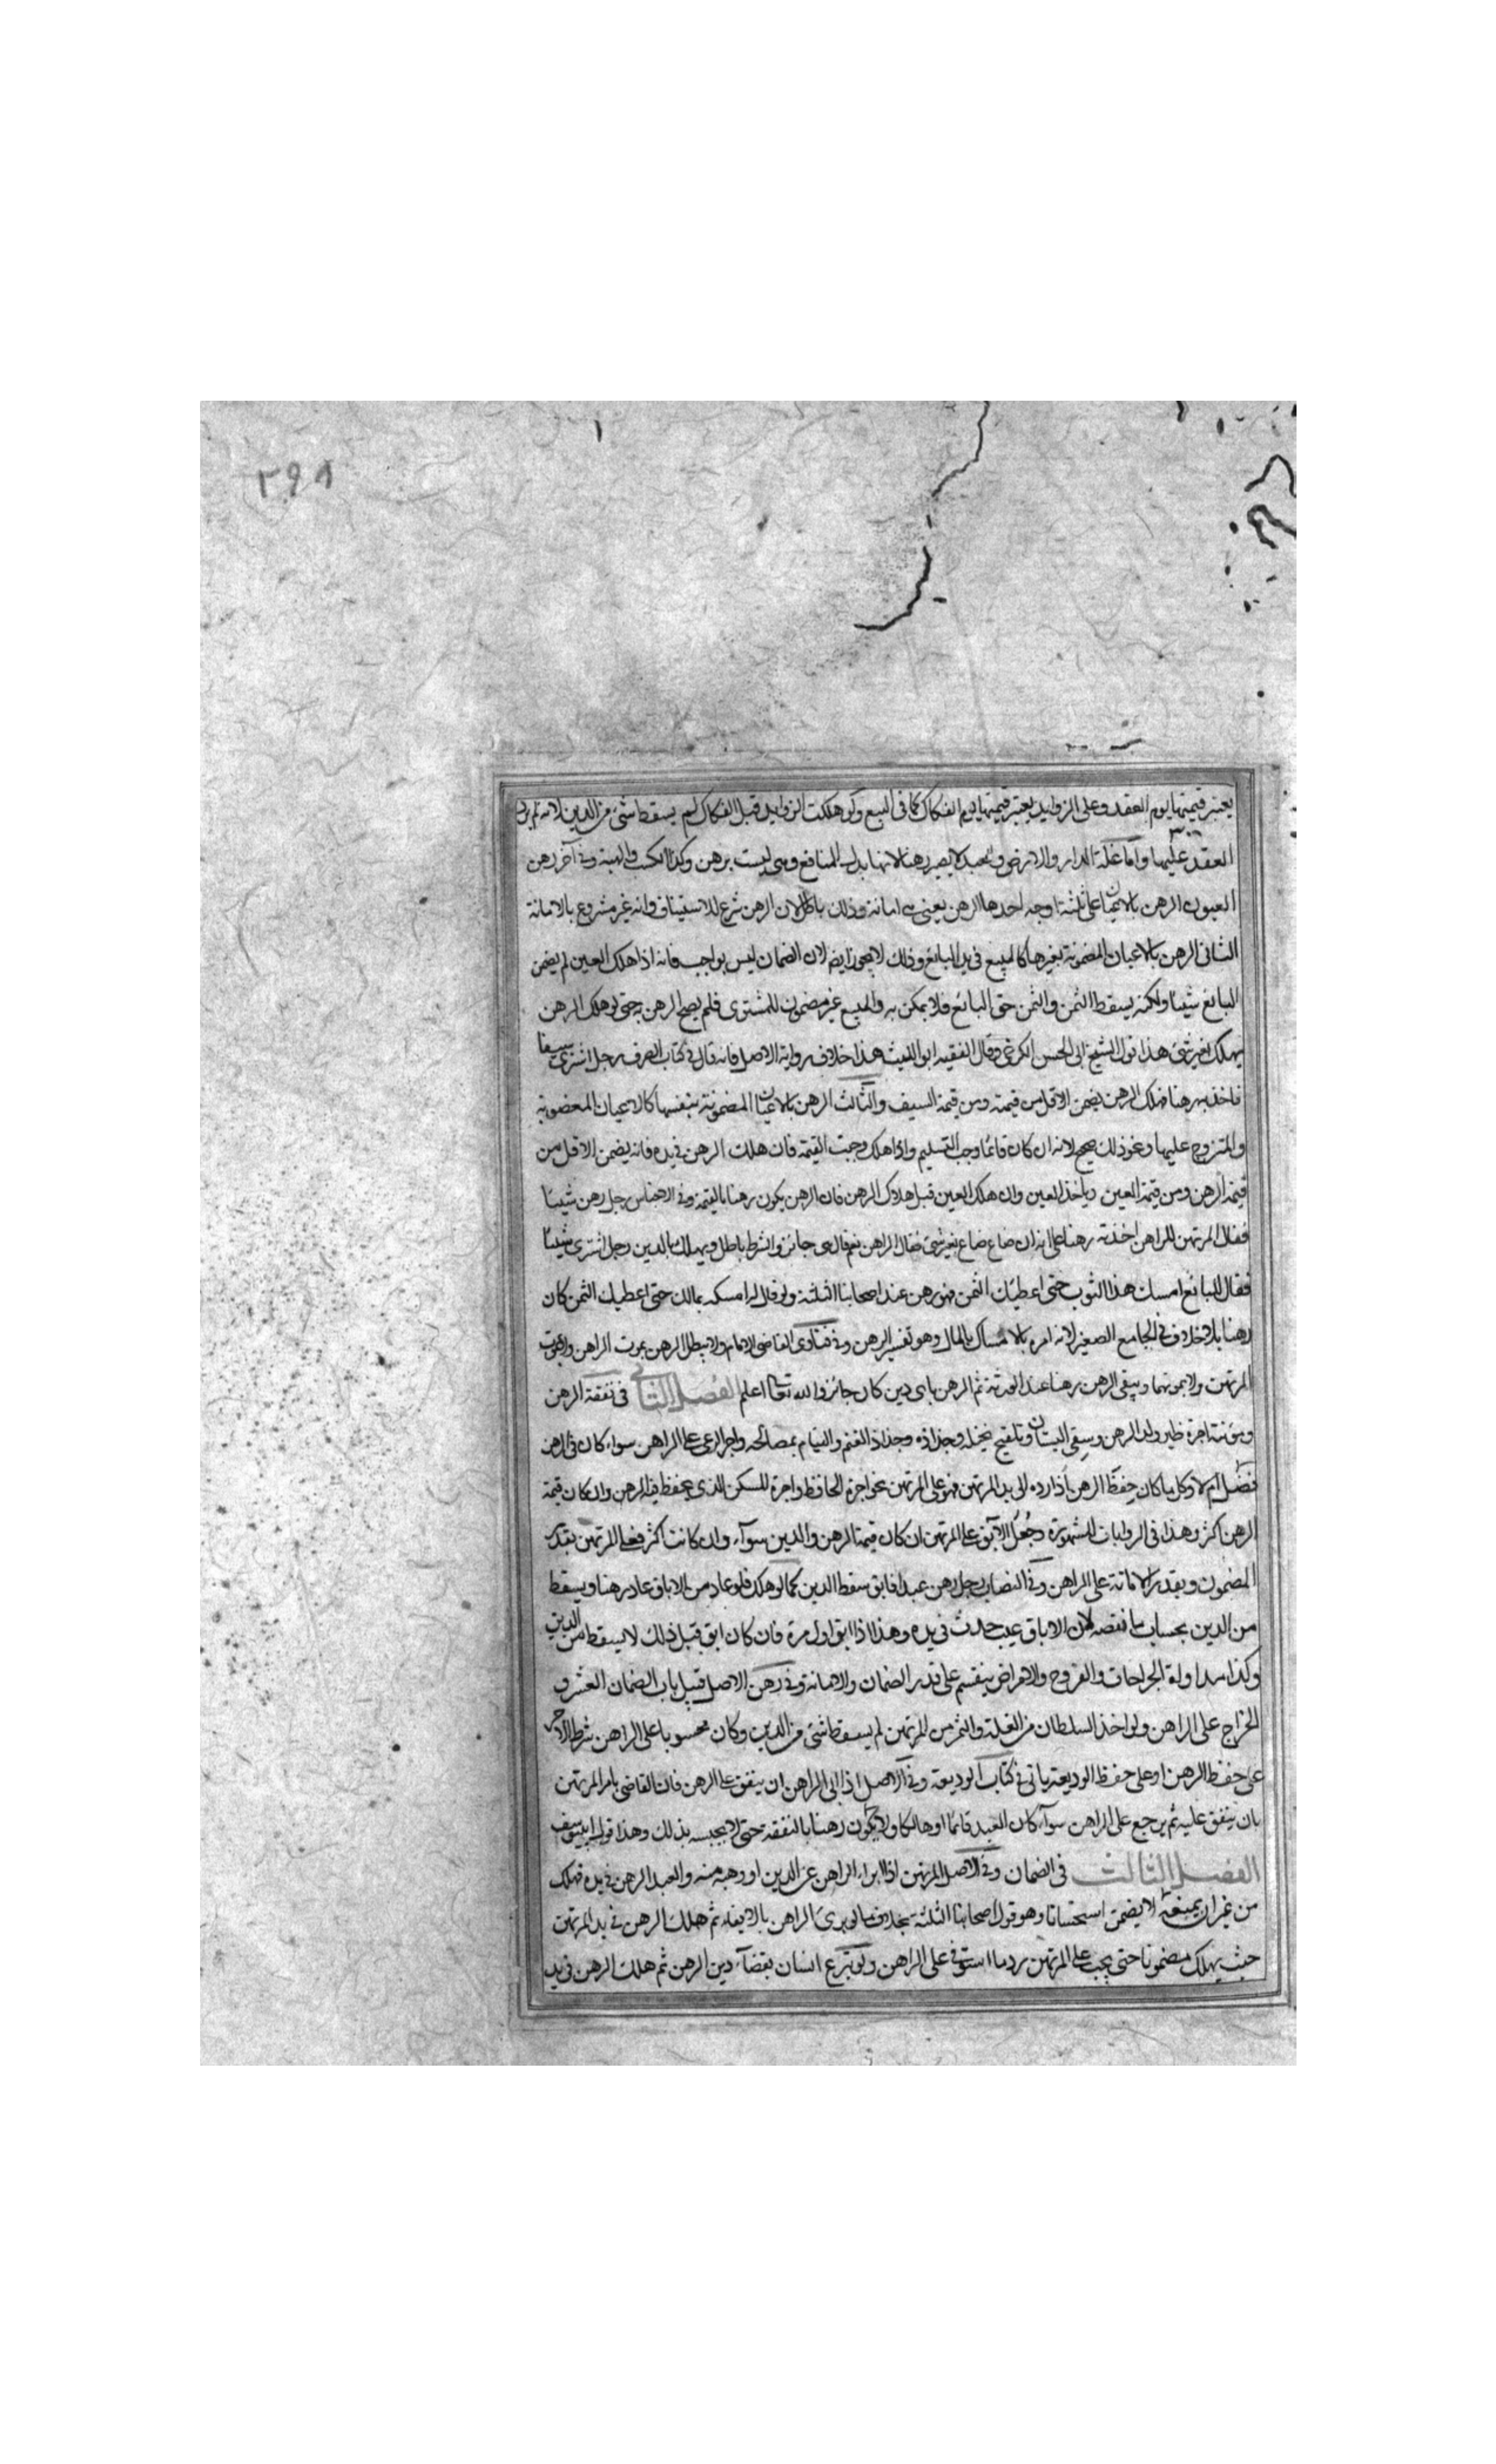 ٢٩٨
يعتبر قيمتها يوم العقد وعلى الزوايد يعتبر قيمتها يوم الفكاك كما في البيع ولو هلكت الزوايد قبل الفكاك لم يسقط شئ من الدين لانه لم يرد
العقد عليها واما غلة الدار والارض والعبد لا يصير رهنا لانها بدل المنافع وهي ليست برهن وكذا الكسب والهبة وفي آخر رهن
العيون الرهن بالاعيان على ثلثة اوجه احدها الرهن بعين هي امانة وذلك باطل لان الرهن شرع للاستيثاق وانه غير مشروع بالامانة
الثاني الرهن بالاعيان المضمونة بغيرها كالمبيع في يد البائع وذلك لا يجوز ايضا لان الضمان ليس بواجب فانه اذا هلك العين لم يضمن
البائع شيئا ولكنه يسقط الثمن والثمن حق البائع فلا يمكن به والمبيع غير مضمون للمشترى فلم يصح الرهن به حتى لو هلك الرهن
يهلك بغير شئ هذا قول الشيخ ابى الحسن الكرخي وقال الفقيه ابو الليث هذا خلاف رواية الاصل فانه قال في كتاب الصرف رجل اشترى سيفا
فاخذ به رهنا فهلك الرهن يضمن الاقل من قيمته ومن قيمة السيف والثالث الرهن بالاعيان المضمونة بنفسها كالاعيان المغصوبة
والمتزوج عليها ونحو ذلك صحيح لانه ان كان قائما وجب التسليم واذا هلك وجبت القيمة فان هلك الرهن في يده فانه يضمن الاقل من
قيمة الرهن ومن قيمة العين وياخذ العين وان هلك العين قبل هلاك الرهن فان الرهن يكون رهنا بالقيمة وفي الاجناس رجل رهن شيئا
فقال المرتهن للراهن اخذته رهنا على انه ان ضاع ضاع بغير شئ فقال الراهن نعم قال هي جائز والشرط باطل ويهلك بالدين رجل اشترى شيئا
فقال للبائع امسك هذا الثوب حتى اعطيك الثمن فهو رهن عند اصحابنا الثلثة ولو قال له امسكه بمالك حتى اعطيك الثمن كان
رهنا بلا خلاف في الجامع الصغير لانه امره بالامساك بالمال وهو تفسير الرهن وفي فتاوى القاضى الامام ولا يبطل الرهن بموت الراهن ولا بموت
المرتهن ولا بموتهما ويبقى الرهن رهنا عند الورثة ثم الرهن باى دين كان جائز والله تعالى اعلم الفصل الثاني في نفقة الرهن
ومؤنته اجرة ظير ولد الرهن وسقى البستان وتلقيح نخيله وجذاذه وجذاذ الغنم والقيام بمصالحه واجر الرعي على الراهن سواء كان في الرهن
فضل ام لا وكل ما كان حفظ الرهن اذا رده الى يد المرتهن فهو على المرتهن نحو اجرة الحافظ واجرة للسكن الذي يحفظ فيه الرهن وان كان قيمة
الرهن اكثر وهذا في الروايات المشهورة وجعل الآبق على المرتهن ان كان قيمة الرهن والدين سواء وان كانت اكثر فعلى المرتهن بقدر
المضمون وبقدر الامانة على الراهن وفي النصاب رجل رهن عبدا فابق سقط الدين كما لو هلك فلو عاد من الاباق عاد رهنا ويسقط
من الدين بحساب ما نقصه لان الاباق عيب حدث في يده وهذا اذا ابق اول مرة فان كان ابق قبل ذلك لا يسقط من الدين
وكذا مداواة الجراحات والقروح والامراض ينقسم على قدر الضمان والامانة وفي رهن الاصل قبيل باب الضمان العشر و
الخراج على الراهن ولو اخذ السلطان من الغلة والثمر من المرتهن لم يسقط شئ من الدين وكان محسوبا على الراهن شرط الاجر
على حفظ الرهن او على حفظ الوديعة ياتى في كتاب الوديعة وفي الاصل اذا ابى الراهن ان ينفق على الرهن فان القاضى يامر المرتهن
بان ينفق عليه ثم يرجع على الراهن سواء كان العبد قائما او هالكا ولا يكون رهنا بالنفقة حتى لا يحبسه بذلك وهذا قول ابى يوسف
الفصل الثالث في الضمان وفي الاصل المرتهن اذا ابراء الراهن عن الدين او وهبه منه والعبد الرهن في يده فهلك
من غير ان يمنعه لا يضمن استحسانا وهو قول اصحابنا الثلثة بخلاف ما لو برئ الراهن بالايفاء ثم هلك الرهن في يد المرتهن
حيث يهلك مضمونا حتى يجب على المرتهن رد ما استوفى على الراهن ولو تبرع انسان بقضاء دين الرهن ثم هلك الرهن في يد